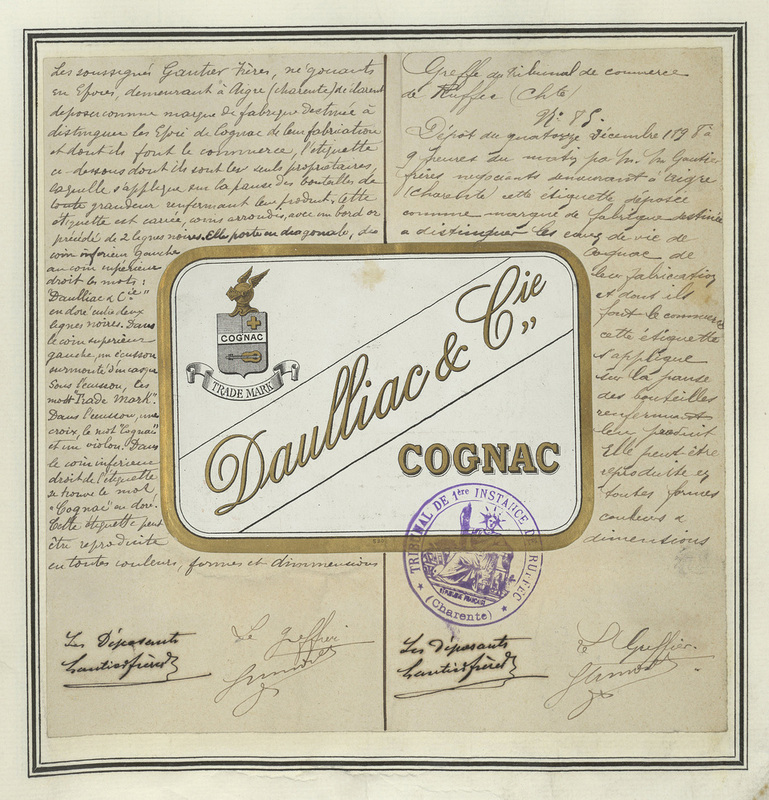 Les soussignés Gautier Frères, négociants
en Epices, demeurant à Aigre (Charente) déclarent
déposer comme marque de fabrique destinée à
distinguer les Epices de Cognac de leur fabrication
et dont ils font le commerce, l'étiquette
ci-dessous dont ils sont les seuls propriétaires,
laquelle s'applique sur la panse des bouteilles de
toute grandeur renfermant leur produit. Cette
étiquette est carrée, coins arrondis, avec un bord or
précédé de 2 lignes noires. Elle porte en diagonale, du
coin inférieur Gauche
au coin supérieur
droit les mots:
"Daulliac & Cie"
en doré entre deux
lignes noires. Dans
le coin supérieur
gauche, un écusson
surmonté d'un casque
Sous l'écusson, les
mots "Trade Mark".
Dans l'écusson, une
croix, le mot "Cognac"
et un violon. Dans
le coin inférieur
droit de l'étiquette
se trouve le mot
"Cognac" en doré.
Cette étiquette peut
être reproduite
en toutes couleurs, formes et dimmensions
Les Déposants
Gautier frères
Le Greffier
Greffe du Tribunal de commerce
de Ruffec (Chte)
N° 85.
Dépôt du quatorze Décembre 1898 à
9 heures du matin par M. M. Gautier
frères négociants demeurant à Aigre
(Charente) cette étiquette déposée
comme marque de fabrique destinée
a distinguer les eaux de vie de
Cognac de
leur fabrication
et dont ils
font le commerce
cette étiquette
s'applique
sur la panse
des bouteilles
renfermant
leur produit
Elle peut être
reproduite en
toutes formes
couleurs &
dimensions
Les déposants
Gautier frères
Le Greffier
COGNAC
TRADE MARK
Daulliac & Cie
COGNAC
TRIBUNAL DE 1ère INSTANCE DE RUFFEC
RÉPUBLIQUE FRANÇAISE
(Charente)